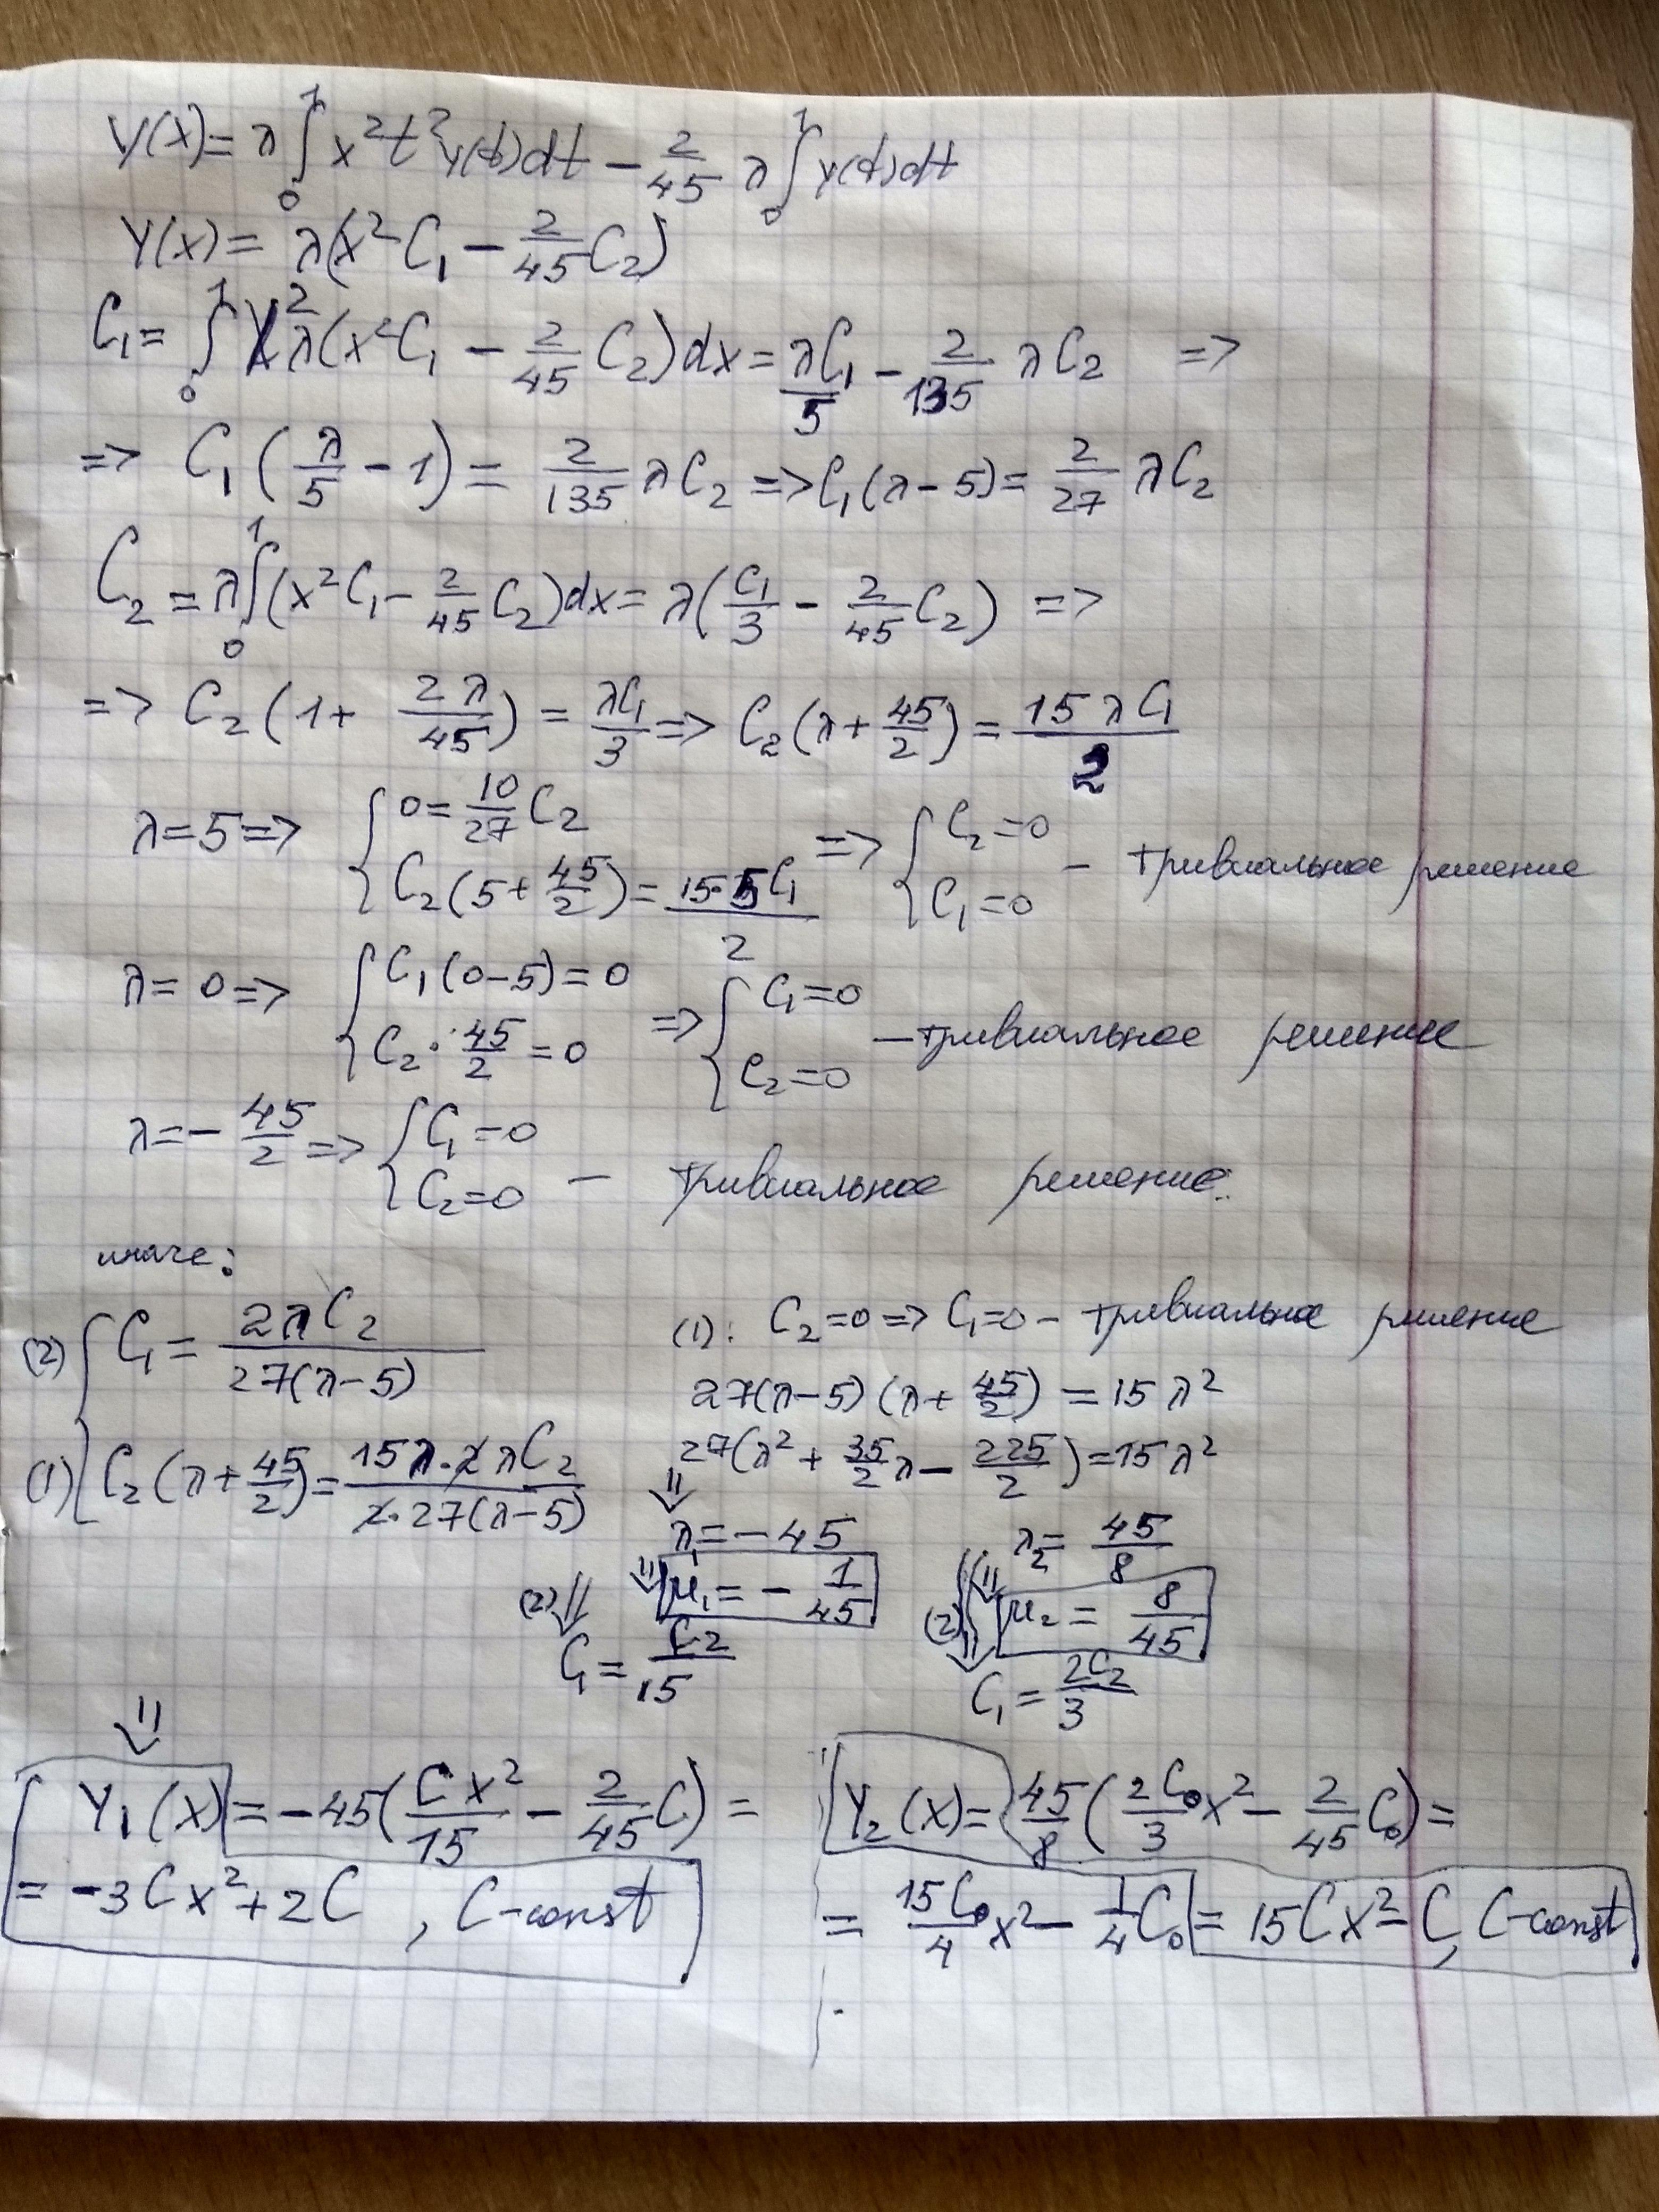 y(x) = λ∫₀¹ x²t²y(t)dt − 2/45 λ∫₀¹ y(t)dt
y(x) = λ(x²C₁ − 2/45 C₂)
C₁ = ∫₀¹ x²λ(x²C₁ − 2/45 C₂)dx = λC₁/5 − 2/135 λC₂ =>
=> C₁(λ/5 − 1) = 2/135 λC₂ => C₁(λ−5) = 2/27 λC₂
C₂ = λ∫₀¹(x²C₁ − 2/45 C₂)dx = λ(C₁/3 − 2/45 C₂) =>
=> C₂(1 + 2λ/45) = λC₁/3 => C₂(λ + 45/2) = 15λC₁/2
λ = 5 => { 0 = 10/27 C₂ ; C₂(5 + 45/2) = 15·5C₁/2 => { C₂ = 0 ; C₁ = 0 – тривиальное решение
λ = 0 => { C₁(0−5) = 0 ; C₂ · 45/2 = 0 => { C₁ = 0 ; C₂ = 0 – тривиальное решение
λ = −45/2 => { C₁ = 0 ; C₂ = 0 – тривиальное решение.
иначе:
(2) { C₁ = 2λC₂/27(λ−5)
(1) { C₂(λ + 45/2) = 15λ·2λC₂/2·27(λ−5)
(1): C₂ = 0 => C₁ = 0 – тривиальное решение
27(λ−5)(λ + 45/2) = 15λ²
27(λ² + 35/2 λ − 225/2) = 15λ²
⇓
λ₁ = −45 λ₂ = 45/8
(2)⇓ ⇓ μ₁ = −1/45 (2)⇓ ⇓ μ₂ = 8/45
C₁ = C₂/15 C₁ = 2C₂/3
⇓
y₁(x) = −45(Cx²/15 − 2/45 C) =
= −3Cx² + 2C, C-const
y₂(x) = 45/8(2C₀/3 x² − 2/45 C₀) =
= 15C₀/4 x² − 1/4 C₀ = 15Cx² − C, C-const